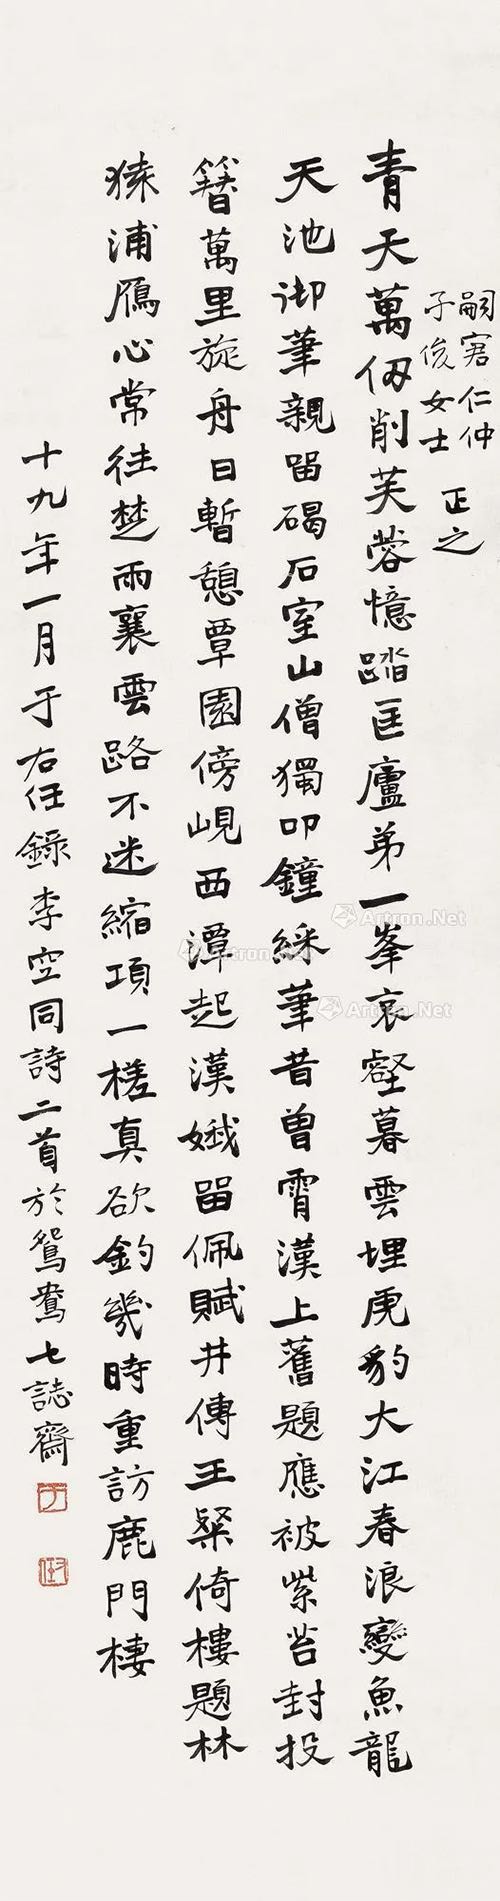 嗣宭仁仲
子俊女士 正之
青天萬仞削芙蓉憶踏匡廬弟一峯哀壑暮雲埋虎豹大江春浪變魚龍
天池御筆親畱碣石室山僧獨叩鐘綵筆昔曾霄漢上舊題應被紫苔封投
簪萬里旋舟日暫憩覃園傍峴西潭起漢娥畱佩賦井傳王粲倚樓題林
猿浦鴈心常往楚雨襄雲路不迷縮項一槎真欲釣幾時重訪鹿門棲
十九年一月于右任錄李空同詩二首於鴛鴦七誌齋
Artron.Net
Artron.Net
Artron.Net